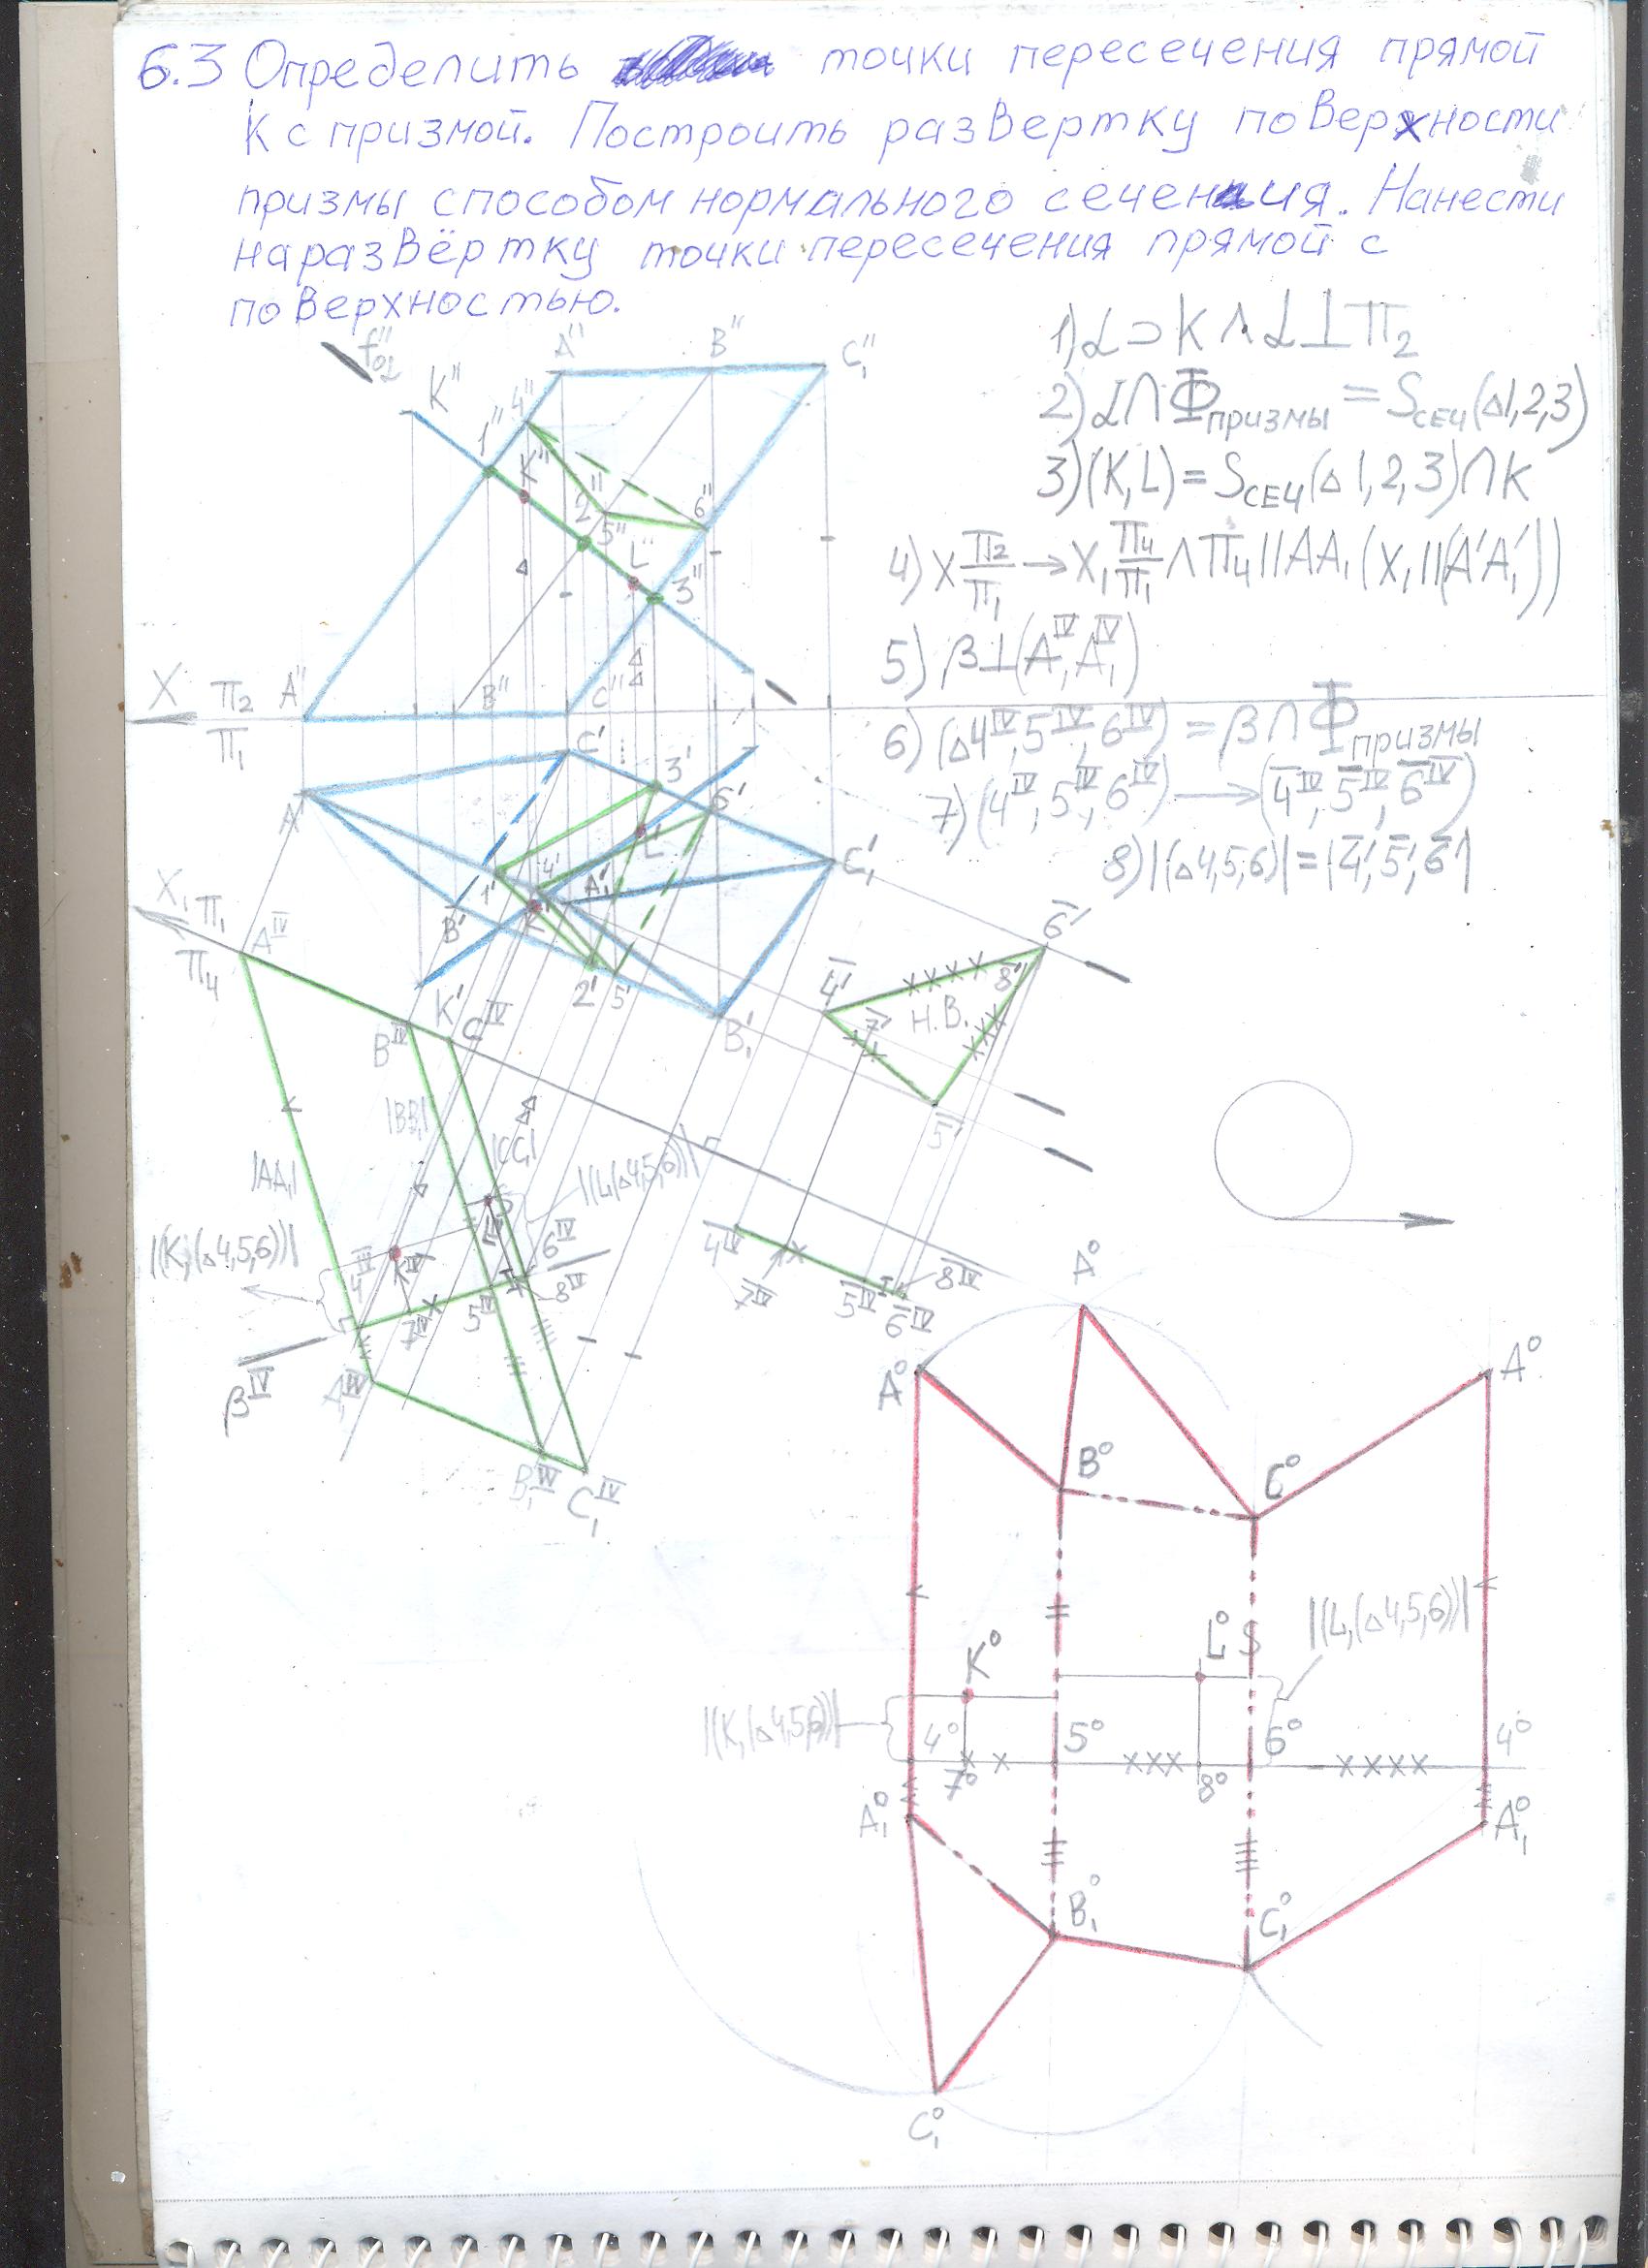 6.3 Определить точки пересечения прямой
К с призмой. Построить развертку поверхности
призмы способом нормального сечения. Нанести
на развёртку точки пересечения прямой с
поверхностью.
1) α ⊃ K ∧ α ⊥ П₂
2) α ∩ Ф призмы = Sсеч (△1,2,3)
3) (K, L) = Sсеч (△1,2,3) ∩ K
4) X П₂/П₁ → X₁ П₄/П₁ ∧ П₄ || AA₁ (X₁ || (A'A₁'))
5) β ⊥ (A^IV, A₁^IV)
6) (△4^IV, 5^IV, 6^IV) = β ∩ Ф призмы
7) (4^IV, 5^IV, 6^IV) → (4̅^IV, 5̅^IV, 6̅^IV)
8) |(△4,5,6)| = |4̅', 5̅', 6̅'|
f''₀₂
K''
A''
B''
C₁''
4''
1''
K''
2''
5''
6''
L''
3''
X П₂/П₁
A''
B''
C''
C'
3'
6'
A'
L'
C₁'
1'
4'
A₁'
K'
B'
2'
5'
B₁'
K'
X₁ П₁/П₄
A^IV
B^IV
C^IV
6̅'
4̅'
8̅'
7̅'
Н.В.
5̅'
|BB₁|
|CC₁|
|AA₁|
|(L,(△4,5,6))|
|(K,(△4,5,6))|
4^IV
K^IV
6^IV
8^IV
7^IV
5^IV
β^IV
A₁^IV
B₁^IV
C₁^IV
4̅^IV
7̅^IV
5̅^IV
6̅^IV
8̅^IV
A⁰
A⁰
A⁰
B⁰
C⁰
K⁰
L⁰
|(L,(△4,5,6))|
|(K,(△4,5,6))|
4⁰
5⁰
6⁰
4⁰
7⁰
8⁰
A₁⁰
A₁⁰
B₁⁰
C₁⁰
C₁⁰